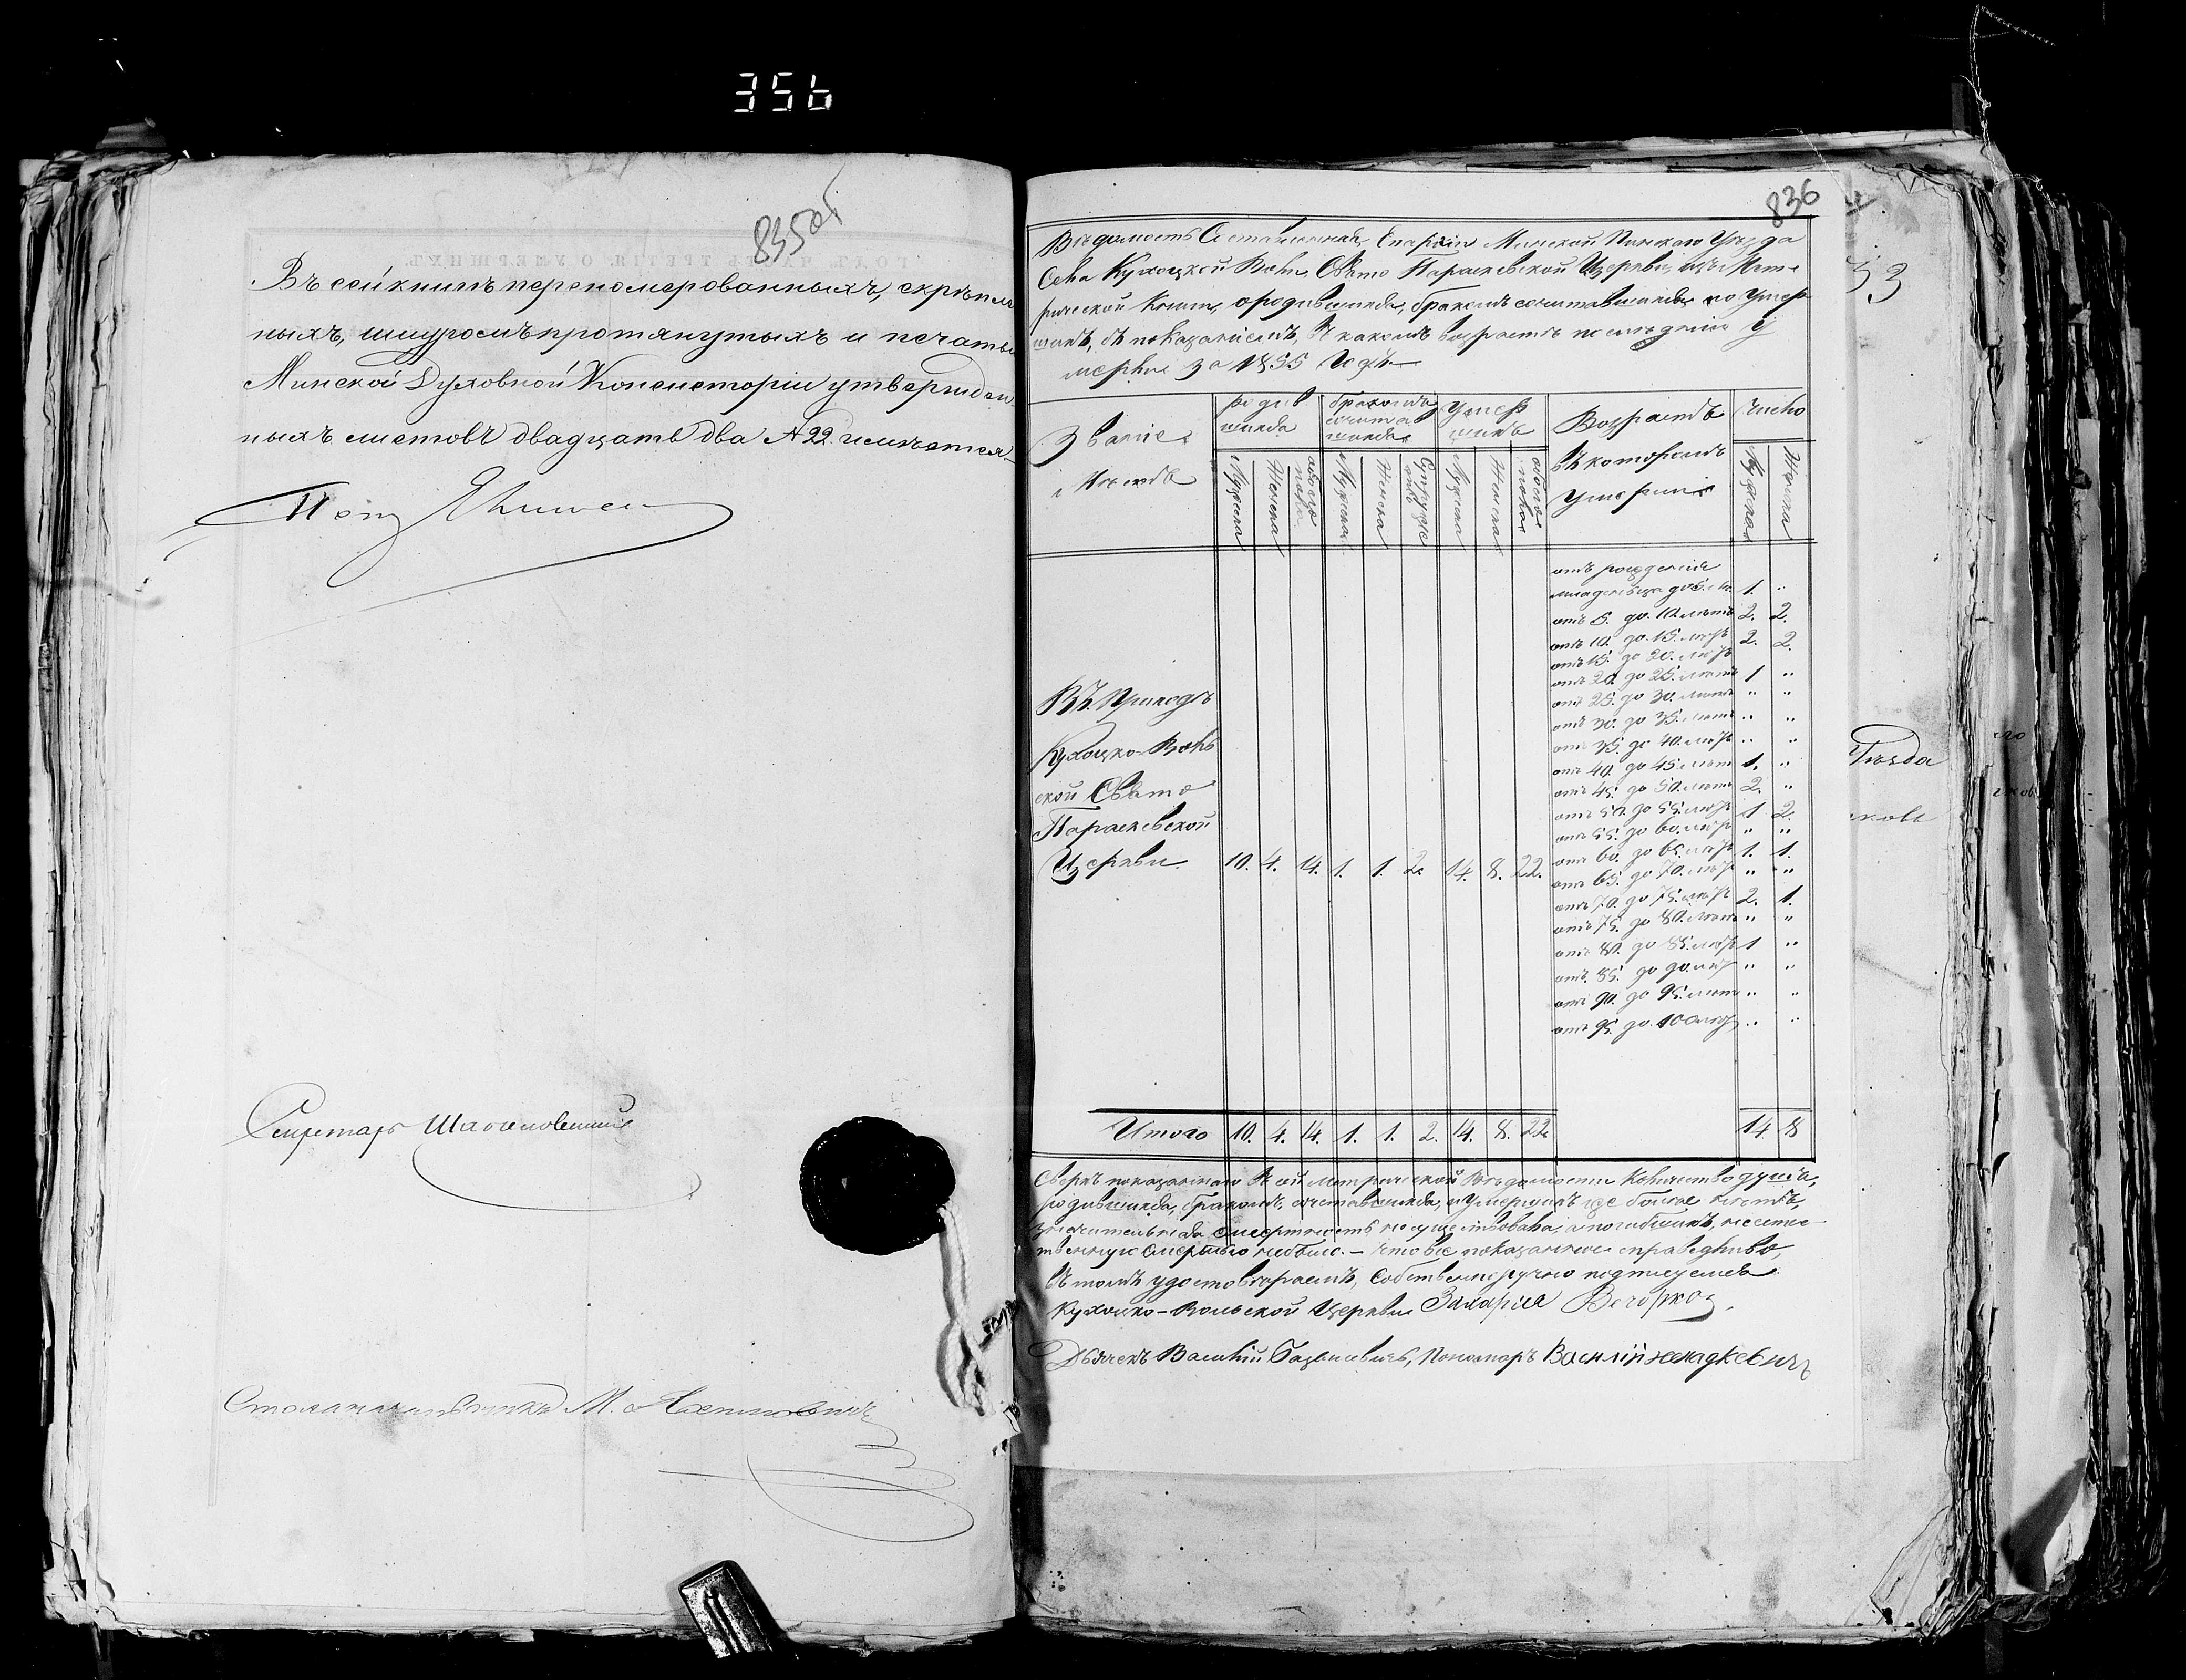 356
835об
Въ сей книгѣ перенумерованныхъ, скрѣплен
ныхъ, шнуромъ протянутыхъ и печатью
Минской Духовной Консисторіи утвержден
ныхъ листовъ двадцать два № 22. имѣется
Секретарь
Столоначальникъ М.
836
Вѣдомость Составленная, Епархіи Минской Пинскаго Уѣзда
Села Кухоцкой Воли, Свято Параскевской Церкви, изъ Мет
рической Книги, о родившихся, бракомъ сочетавшихся, и Умер
шихъ, съ показаніемъ, въ какомъ возрастѣ последніи у
мерли за 1855 Годъ
Званіе
и Мѣсто
родив
шихся
бракомъ
сочетав
шихся
Умер
шихъ
Возрастъ
въ которомъ
Умершіе
Число
Мужеска
Женска
обоего
пола
Мужеска
Женска
Супруже
ствъ
Мужеска
Женска
обоего
пола
Мужеска
Женска
отъ рожденія
младенцевъ до 5. л. 1. "
отъ 5. до 10 лѣтъ 2. 2.
отъ 10. до 15. лѣтъ 2. 2.
отъ 15. до 20. лѣтъ
отъ 20. до 25. лѣтъ 1 "
отъ 25. до 30. лѣтъ " "
отъ 30. до 35. лѣтъ " "
отъ 35. до 40. лѣтъ " "
отъ 40. до 45 лѣтъ 1. "
отъ 45. до 50. лѣтъ 2. "
отъ 50. до 55. лѣтъ 1 2.
отъ 55. до 60. лѣтъ " "
отъ 60. до 65. лѣтъ 1. 1.
отъ 65. до 70. лѣтъ " "
отъ 70. до 75. лѣтъ 2. 1.
отъ 75. до 80. лѣтъ " "
отъ 80. до 85. лѣтъ 1 "
отъ 85. до 90. лѣтъ " "
отъ 90. до 95. лѣтъ " "
отъ 95. до 100 лѣтъ " "
Въ Приходѣ
Кухоцко-Воль
ской Свято
Параскевской
Церкви 10. 4. 14. 1. 1. 2. 14. 8. 22.
Итого 10. 4. 14. 1. 1. 2. 14. 8. 22. 14 8
Сверхъ показаннаго въ сей метрической Вѣдомости Количества душъ,
родившихся, бракомъ, сочетавшихся, и Умершихъ же болѣе нѣтъ,
значительная смертность не существовала, а погибшихъ, неесте
твенную смертью небыло. – что все показанное справедливо,
въ томъ удостовѣряемъ, Собственноручно подписуемся
Кухоцко-Вольской Церкви Захарія
Дьячекъ Василій Пономарь Василій
33
Уѣзда